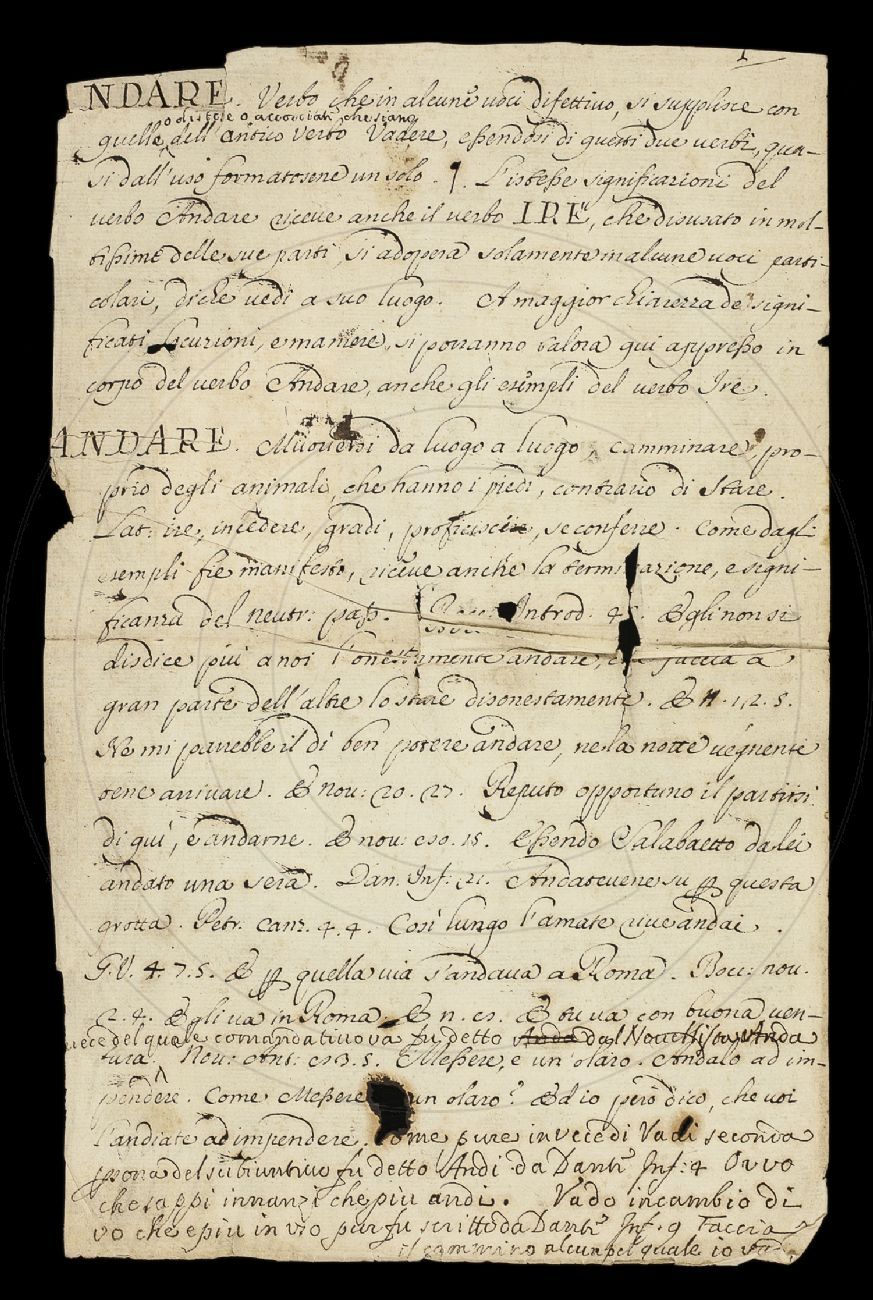 1
ANDARE. Verbo che in alcune voci difettivo, si supplisce con
o distese o accorciati che siano
quelle dell'antico verbo Vadere, essendosi di questi due verbi, qua-
si dall'uso formatosene un solo. ¶. L'istesse significazioni del
verbo Andare riceve anche il verbo IRE, che disusato in mol-
tissime delle sue parti, si adopera solamente in alcune voci parti-
colari, di che vedi a suo luogo. A maggior chiarezza de' signi-
ficati, locuzioni, e maniere, si porranno talora qui appresso in
corpo del verbo Andare, anche gli esempli del verbo Ire.
ANDARE. Muoversi da luogo a luogo, camminare, pro-
prio degli animali, che hanno i piedi, contrario di Stare.
Lat: ire, incedere, gradi, proficisci, se conferre. Come dagli
esempli fie manifesto, riceve anche la terminazione, e signi-
ficanza del neutr: pass. Introd: 45. Egli non si
disdice più a noi l'onestamente andare, che faccia a
gran parte dell'altre lo stare disonestamente. E n. 12. 5.
Ne mi parrebbe il dì ben potere andare, ne la notte vegnente
bene arrivare. E nov: 20. 27. Reputo opportuno il partirsi
di quì, e andarne. E nov: 80. 15. Essendo Salabaetto da lei
andato una sera. Dan. Inf: 21. Andatevene su per questa
grotta. Petr. canz. 4. 4. Così lungo l'amate rive andai.
G. V. 4. 7. 5. E per quella via s'andava a Roma. Bocc: nov.
2. 4. Egli va in Roma. E n. 21. E tu va con buona ven-
vece del quale comandativo va fu detto Anda dal Novellista Anda
tura. Nov: Ant: 83. 5. Messere, e un olaro. Andalo ad im-
pendere. Come Messere un olaro? Ed io però dico, che voi
l'andiate ad impendere. Come pure in vece di Vadi seconda
prsona del subiuntivo fu detto Andi da Dante Inf: 4 Or vo
che sappi innanzi che più andi. Vado in cambio di
vo che e piu in uso pur fu scritto da Dante Inf. 9 Faccia
il cammino alcun pel quale io vado.